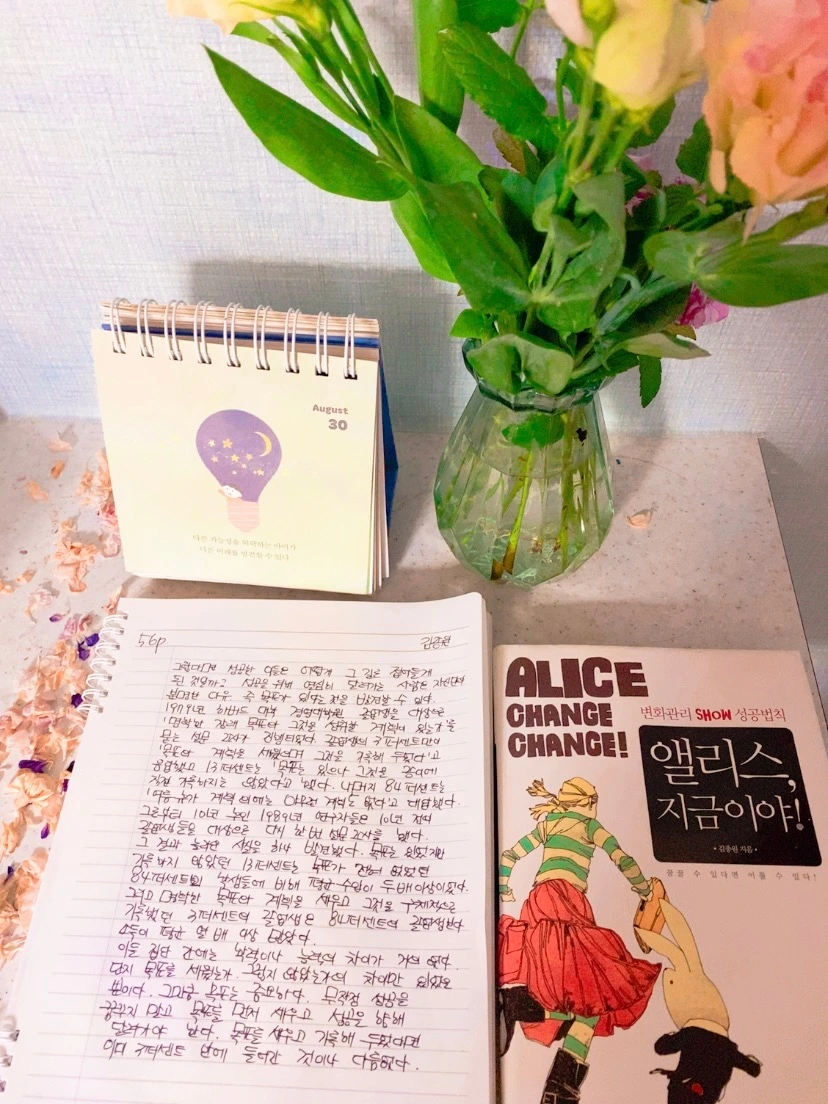 August
30
다른 가능성을 허락하는 아이가
다른 미래를 발견할 수 있다
56p
김종원
그렇다면 성공한 이들은 어떻게 그 길로 접어들게
된 것일까. 성공을 위해 열심히 달려가는 사람은 자신만의
분명한 다운, 즉 목표가 있다는 것을 발견할 수 있다.
1979년 하버드 대학 경영대학원 졸업생을 대상으로
'명확한 장래 목표와 그것을 성취할 계획이 있는가'를
묻는 설문 조사가 진행되었다. 졸업생의 3퍼센트만이
'목표와 계획을 세웠으며 그것을 기록해 두었다'고
응답했고 13퍼센트는 '목표는 있으나 그것을 종이에
직접 기록하지는 않았다고 했다. 나머지 84퍼센트는
'여름 휴가 계획 외에는 아무런 계획도 없다'고 대답했다.
그로부터 10년 후인 1989년 연구자들은 10년 전의
졸업생들을 대상으로 다시 한 번 설문 조사를 했다.
그 결과 놀라운 사실을 하나 발견했다. 목표는 있었지만
기록하지 않았던 13퍼센트는 목표가 전혀 없었던
84퍼센트의 학생들에 비해 평균 수입이 두 배 이상이었다.
그리고 명확한 목표와 계획을 세우고 그것을 구체적으로
기록했던 3퍼센트의 졸업생은 84퍼센트의 졸업생보다
소득이 평균 열 배 이상 많았다.
이들 집단 간에는 학력이나 능력의 차이가 거의 없다.
단지 목표를 세웠는가 그렇지 않았는가의 차이만 있었을
뿐이다. 그만큼 목표는 중요하다. 무작정 성공을
꿈꾸지 말고 목표를 먼저 세우고 성공을 향해
달려가야 한다. 목표를 세우고 기록해 두었다면
이미 3퍼센트 안에 들어간 것이나 다름없다.
ALICE
CHANGE
CHANGE!
변화관리 SHOW 성공법칙
앨리스,
지금이야!
• 김종원 지음 •
꿈꿀 수 있다면 이룰 수 있다!